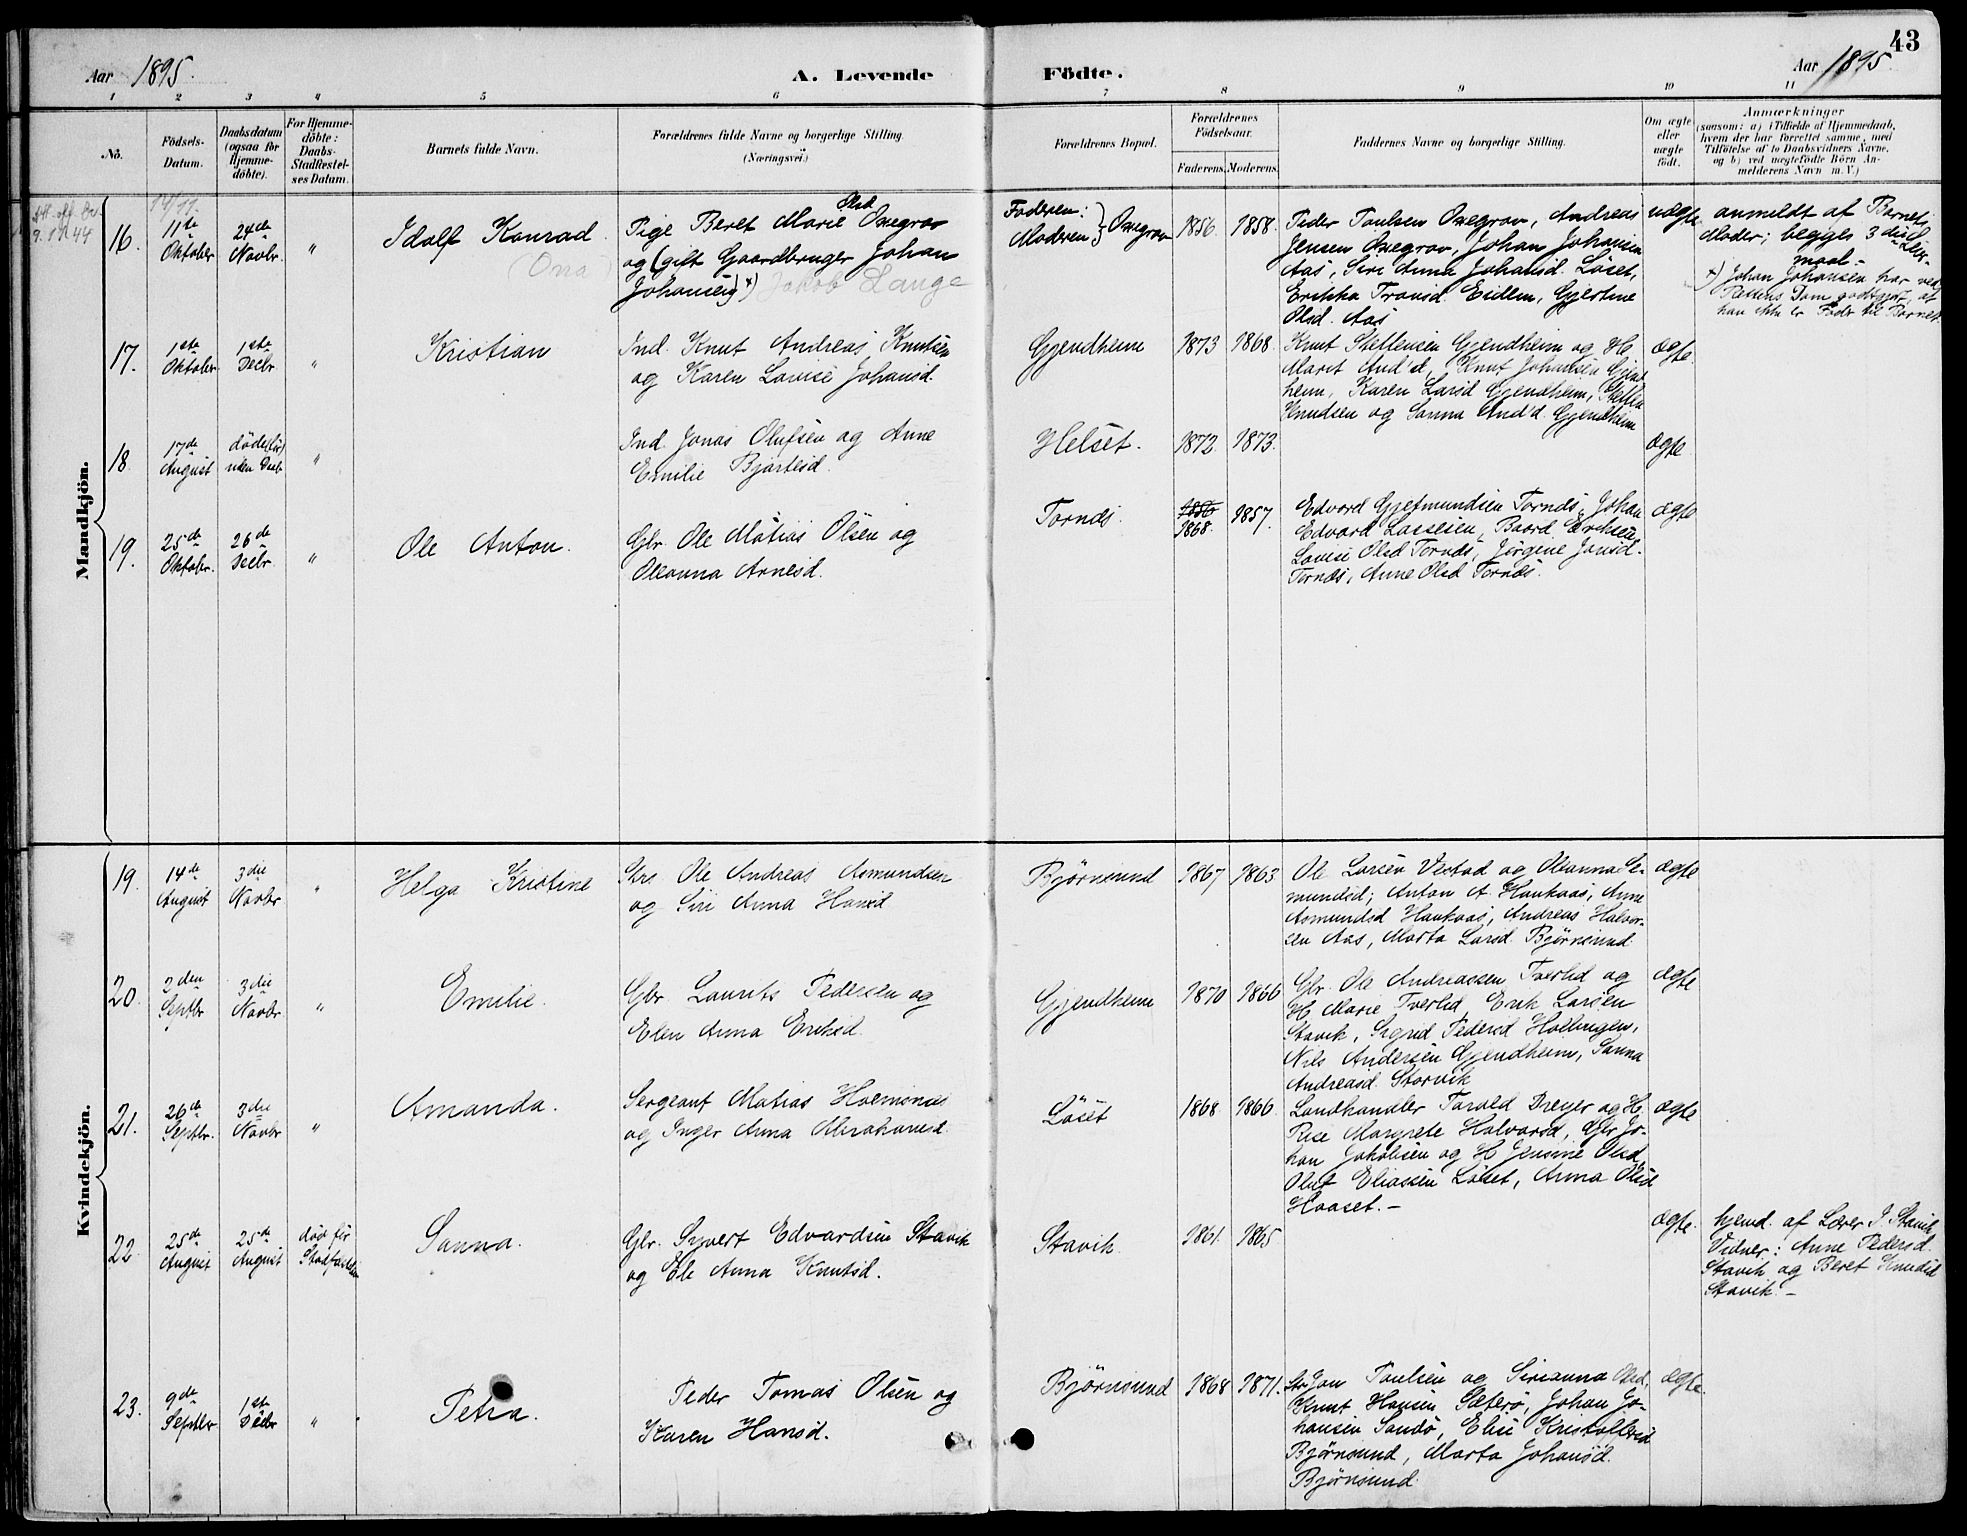 43
Aar 1895. A. Levende Födte. Aar 1895
1 2 3 4 5 6 7 8 8 9 10 11
No.
Födsels-
Datum.
Daabsdatum
(ogsaa for
Hjemme-
döbte).
For Hjemme-
döbte:
Daabs-
Stadfæstel-
ses Datum.
Barnets fulde Navn.
Forældrenes fulde Navne og borgerlige Stilling.
(Næringsvei.)
Forældrenes Bopæl.
Forældrenes
Födselsaar.
Faderens. Moderens.
Faddernes Navne og borgerlige Stilling.
Om ægte
eller
uægte
födt.
Anmærkninger
(saasom: a) i Tilfælde af Hjemmedaab,
hvem der har forrettet samme, med
Tilföielse af to Daabsvidners Navne,
og b) ved uægtefödte Börn An-
melderens Navn m. V.)
Mandkjön.
16.
11te
Oktober
24de
Novbr.
"
Idolf Konrad
(Ona)
Olsd
Pige Beret Marie Oxegrav
og (gift Gaardbruger Johan
Johansen) x) Jakob Lange
Faderen:
Moderen } Oxegrav
1856. 1858.
Peder Paulsen Oxegrav, Andreas
Jensen Oxegrav, Johan Johansen
Aas, Siri Anna Johansd. Löset,
Erikka Tronsd. Eidem, Gjertine
Olsd. Aas
uægte
anmeldt af Barnets
Moder; begges 3die
Leier-
maal.-
x) Johan Johansen har ved
Rettens Dom godtgjort, at
han ikke er Fader til Barnet.
17.
1ste
Oktober.
1ste
Decbr
"
Kristian
Ind. Knut Andreas Knutsen
og Karen Lovise Johansd.
Gjendheim
1873 1868.
Knut Steffensen Gjendheim og H.
Marit And'd, Knut Johansen Gjend
heim, Karen Larsd Gjendheim, Steffen
Knudsen og Sanna And'd Gjendheim
ægte.
18
17de
August
uden Daab
"
Ind. Jonas Olufsen og Anne
Emilie Bjartesd.
Helset.
1872. 1873.
ægte
19.
25de
Oktober.
26de
Decbr.
"
Ole Anton.
Gbr. Ole Matias Olsen og
Oleanna Arnesd.
Tornæs.
1856
1868. 1857.
Edvard Gjetmundsen Tornæs, Johan
Edvard Lassesen, Baard Eriksen,
Lovise Olsd Tornæs, Jørgine Jonsd.
Tornæs, Anne Olsd Tornæs.
ægte
Kvindekjön.
19.
14de
August
3die
Novbr
"
Helga Kristine
Str. Ole Andreas Asmundsen
og Siri Anna Hansd
Bjørnsund
1867 1863
Ole Larsen Vestad og Oleanna Se-
mundsd; Anton A. Haukaas, Anne
Asmundsd Haukaas, Andreas Halvor-
sen Aas, Marta Larsd. Bjørnsund.
ægte
20.
2den
Septbr
3die
Novbr.
"
Emilie.
Gbr. Laurits Pedersen og
Elen Anna Eriksd.
Gjendheim
1870 1866
Gbr. Ole Andreassen Tverlid og
H. Marie Tverlid, Erik Larsen
Stavik, Sigrid Pedersd Hollingen,
Nils Andersen Gjendheim, Sanna
Andreasd. Storvik
ægte
21.
26de
Septbr.
3die
Novbr
"
Amanda.
Sergeant Matias Holmsnes
og Inger Anna Abrahamsd.
Löset
1868. 1866.
Landhandler Tarald Dreyer og H.
Rise Margrete Halvorsd, Gbr Jo-
han Jakobsen og H Jensine Olsd
Oluf Eliassen Löset, Anna Olsd
Haaset. -
ægte
22
25de
August
25de
August
död før
Stadfæstelse
Sanna.
Gbr. Syvert Edvardsen Stavik
og Ole Anna Knutsd.
Stavik.
1861. 1865
ægte.
hjemd. af Lærer P. Stavik
Vidner: Anne Pedersd.
Stavik og Beret Knudsd
Stavik. -
23.
9de
Septbr
1ste
Decbr
"
Petra.
Peder Tomas Olsen og
Karen Hansd.
Bjørnsund
1868 1871.
Str. Jon Paulsen og Sirianna Olsd,
Knut Hansen Sæterø, Johan Jo-
hansen Sandö, Elise Kristoffersd
Bjørnsund, Marta Johansd.
Bjørnsund.
ægte.